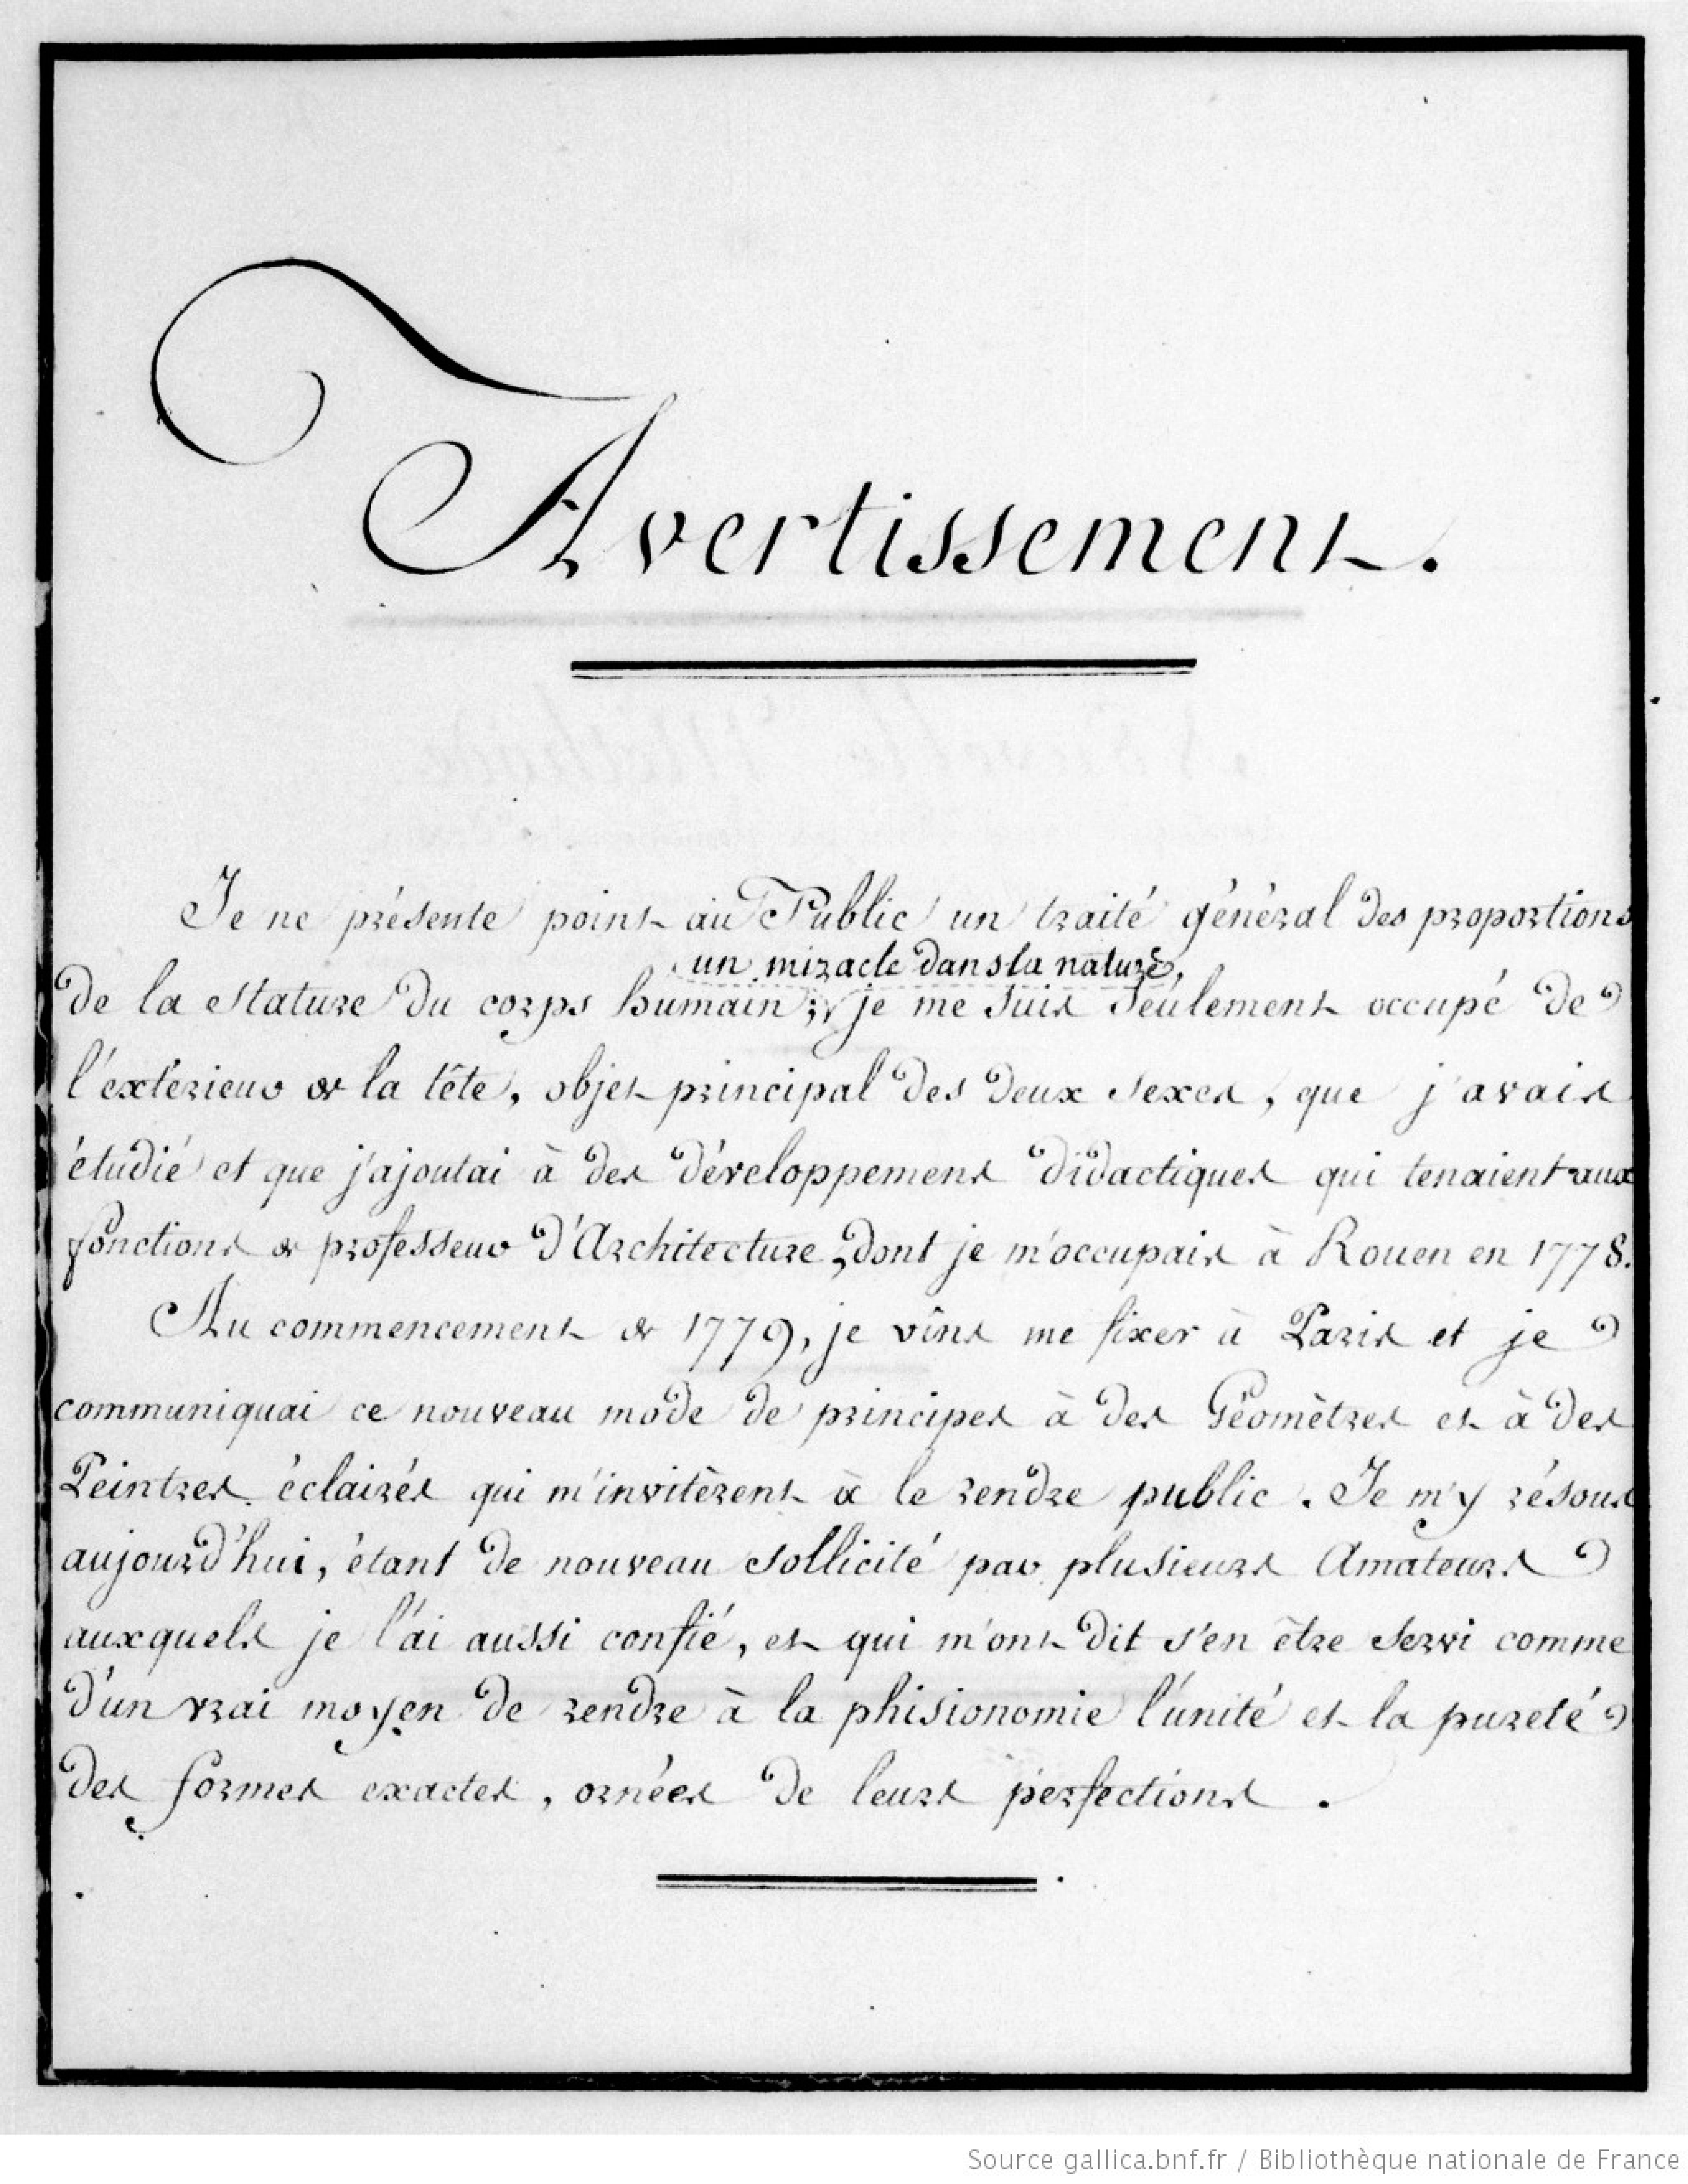 Avertissement.
Je ne présente point au Public un traité général des proportions
un miracle dans la nature,
de la stature du corps humain; je me suis seulement occupé de
l'extérieur de la tête, objet principal des deux sexes, que j'avais
étudié et que j'ajoutai à des développemens didactiques qui tenaient aux
fonctions de professeur d'Architecture, dont je m'occupais à Rouen en 1778.
Au commencement de 1779, je vins me fixer à Paris et je
communiquai ce nouveau mode de principes à des Géomètres et à des
Peintres éclairés qui m'invitèrent à le rendre public. Je m'y résous
aujourd'hui, étant de nouveau sollicité par plusieurs Amateurs
auxquels je l'ai aussi confié, et qui m'ont dit s'en être servi comme
d'un vrai moyen de rendre à la phisionomie l'unité et la pureté
des formes exactes, ornées de leurs perfections.
Source gallica.bnf.fr / Bibliothèque nationale de France